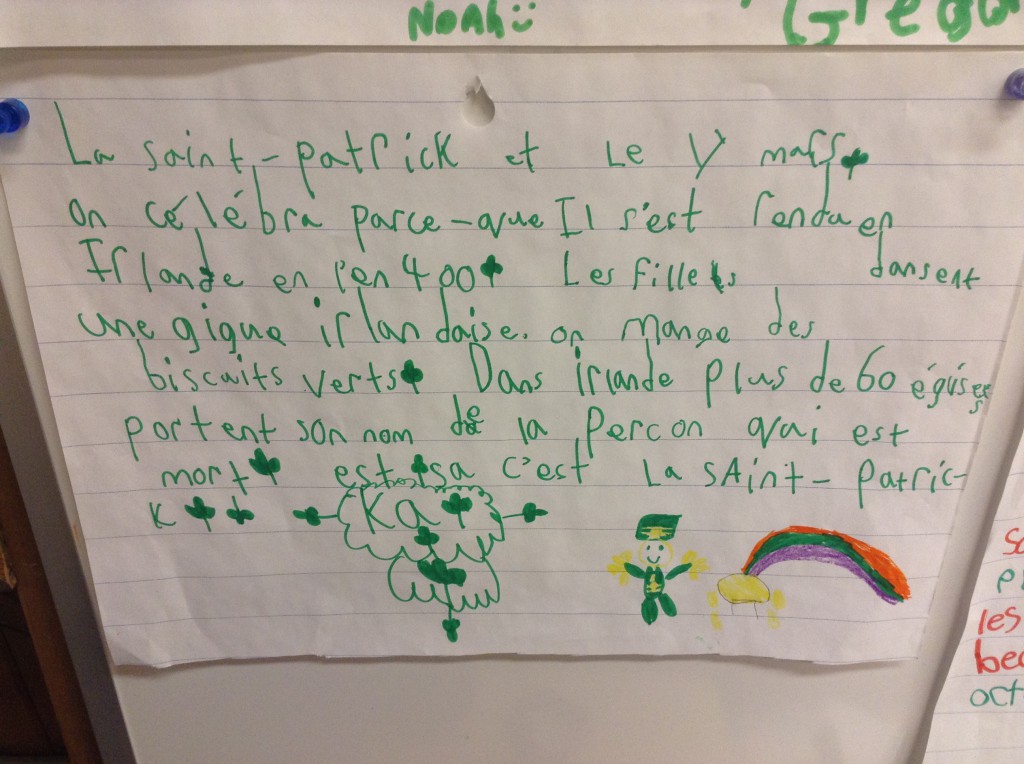 Noah
Grego
La saint-patrick et le 17 mars
on célébra parce-que Il s'est rendu en
Irlande en l'en 400 Les filles dansent
une gigue irlandaise. on mange des
biscuits verts Dans irlande plus de 60 égises
portent son nom de la percon qui est
mort est sa c'est La sAint-patric-
k
Ka
les
oct